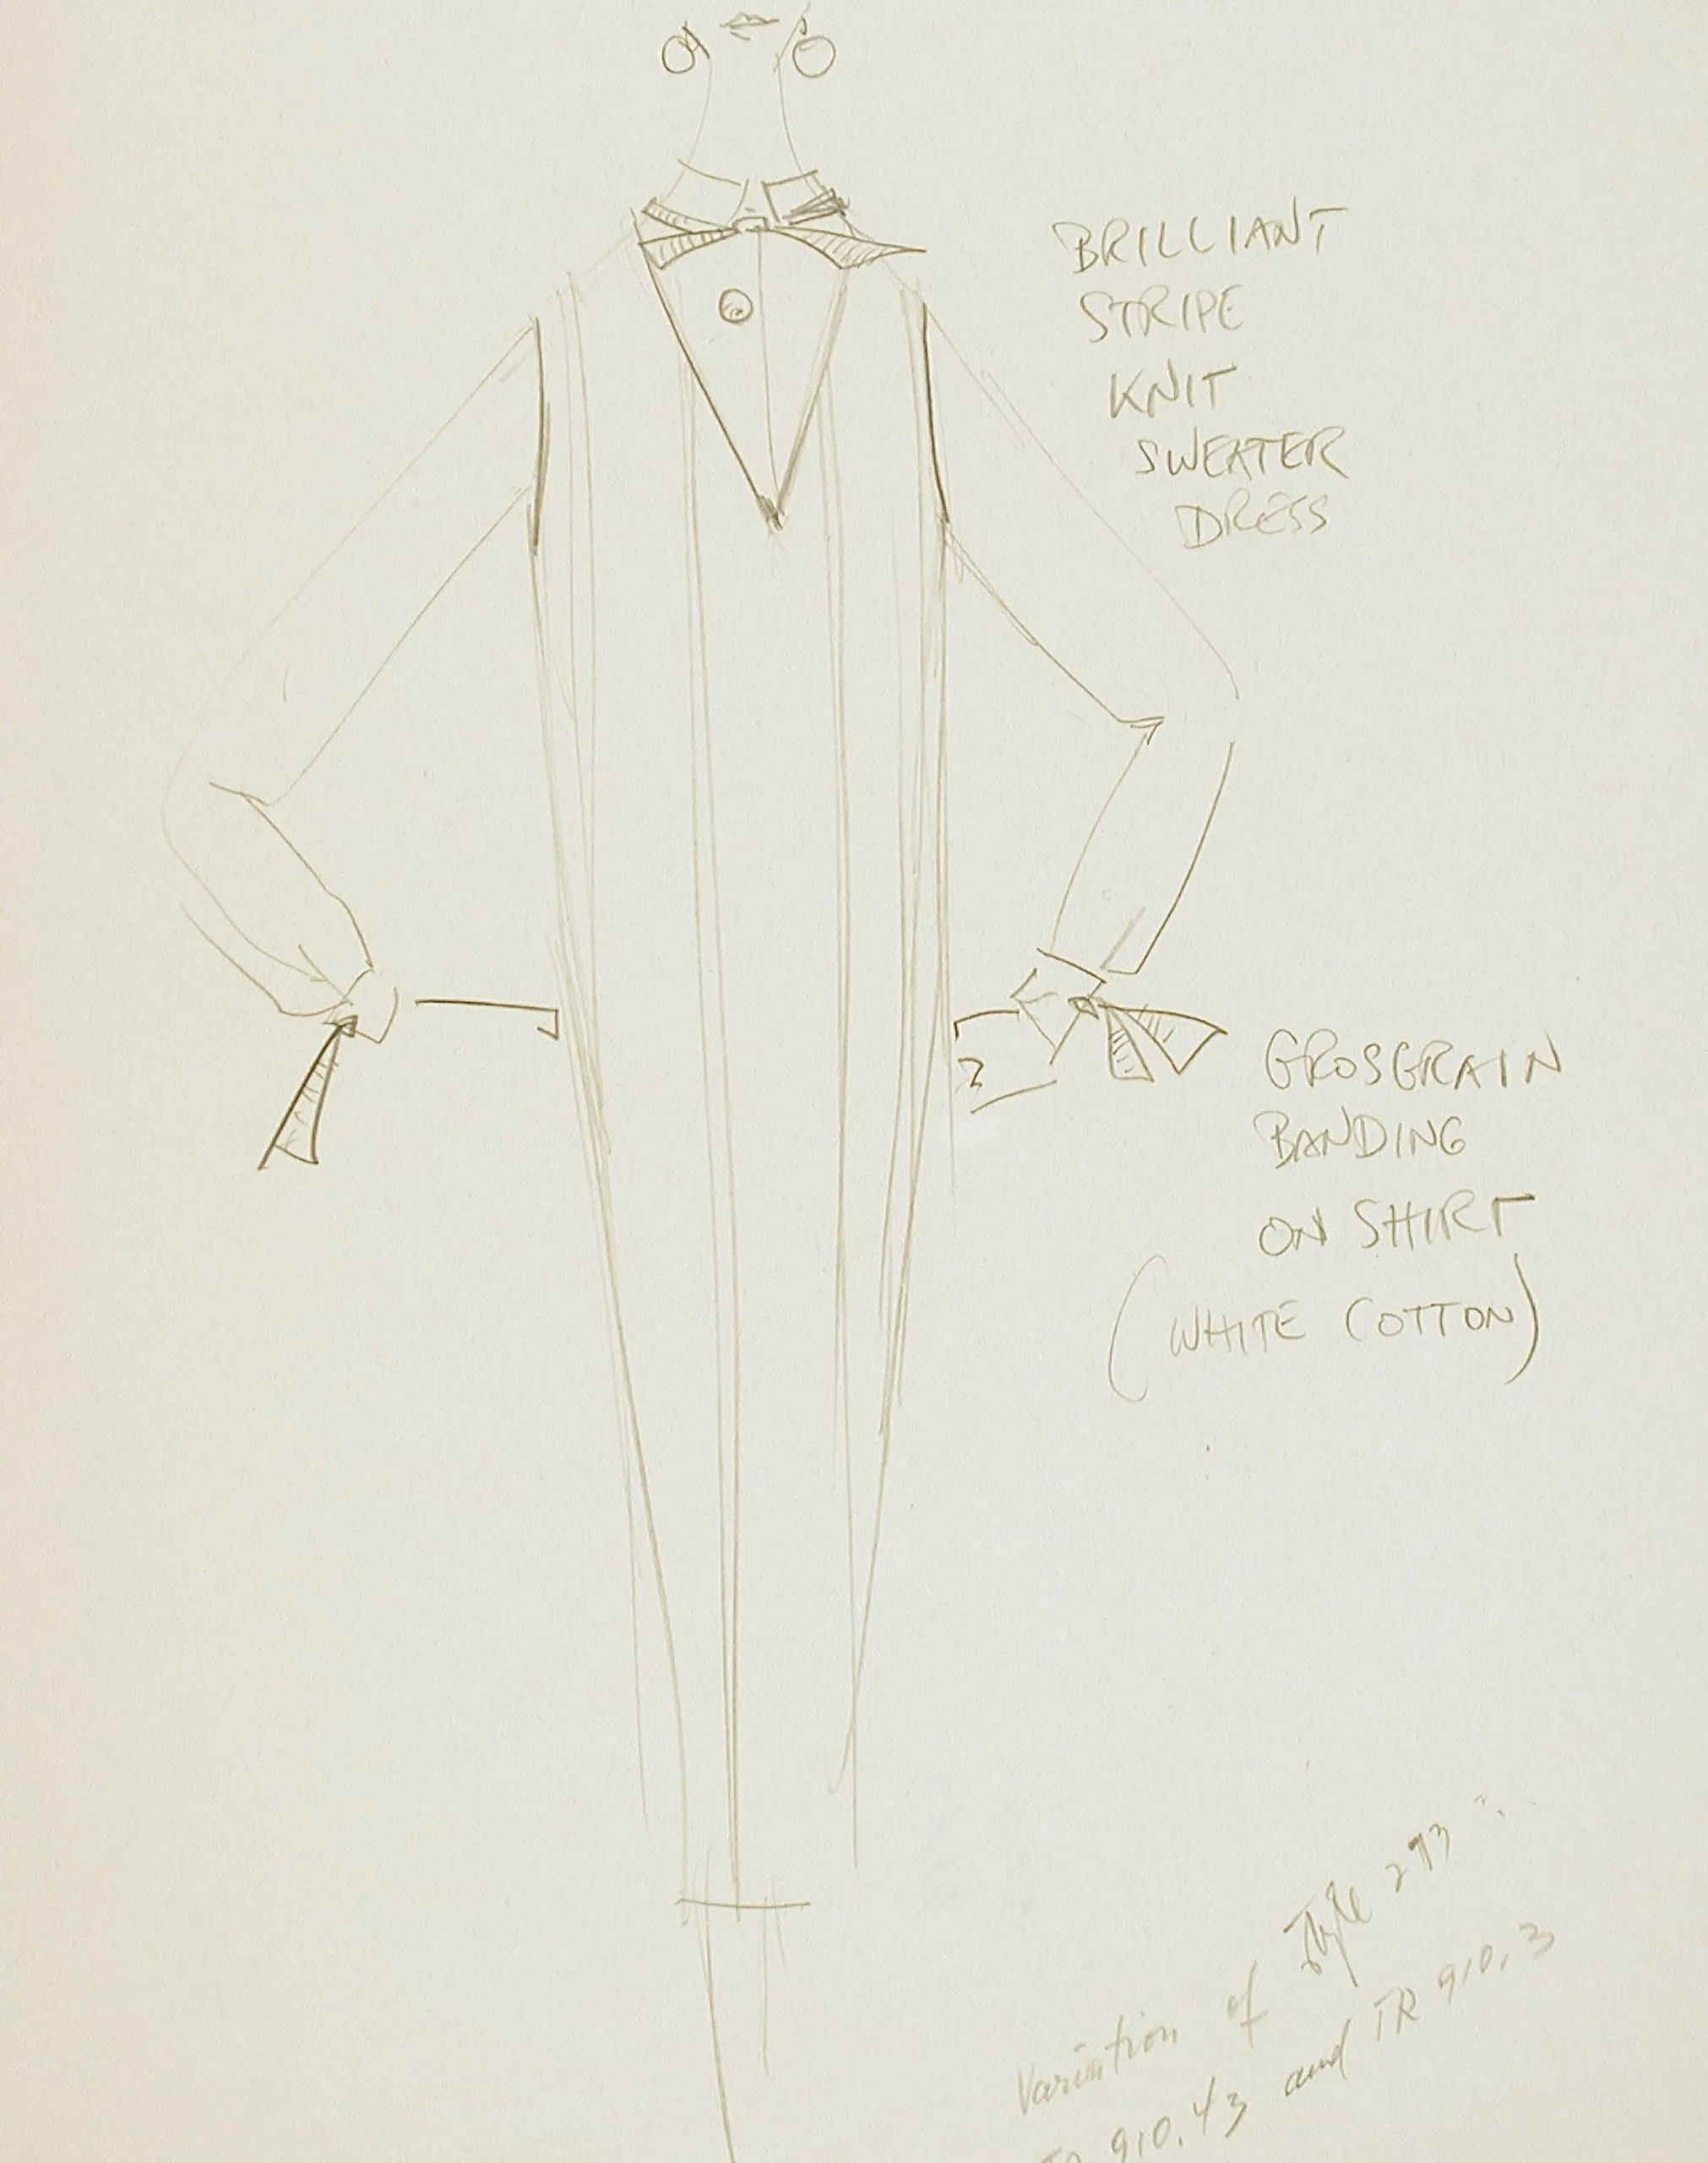 BRILLIANT
STRIPE
KNIT
SWEATER
DRESS
GROSGRAIN
BANDING
ON SHIRT
(WHITE COTTON)
Variation of Style 293
910.43 and TR 910.3